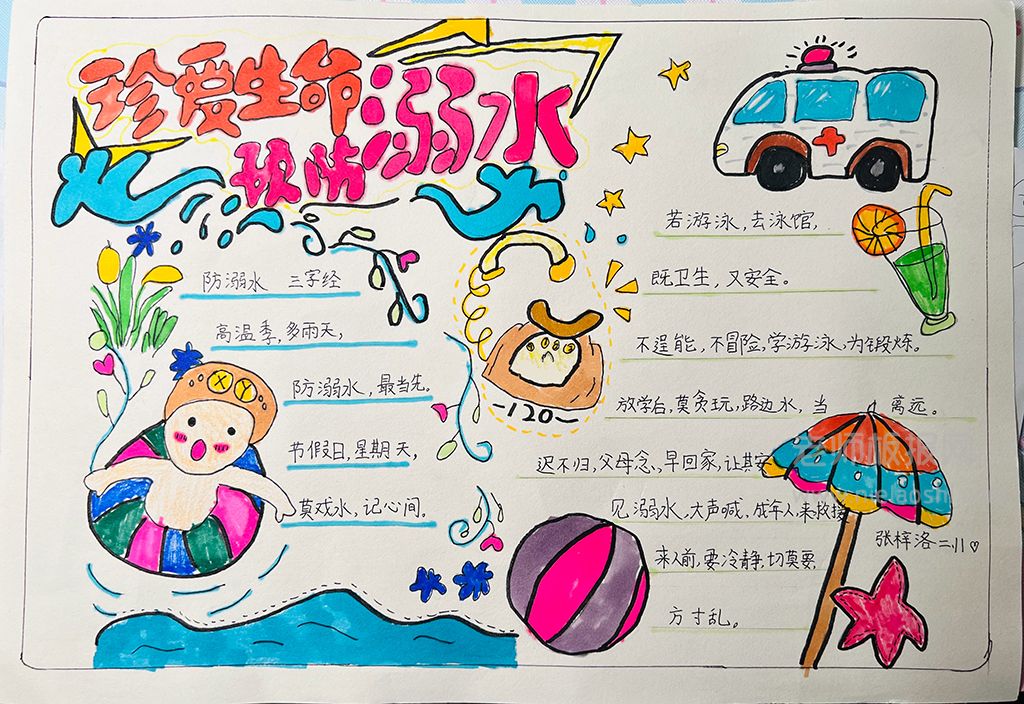 珍爱生命
预防溺水
防溺水 三字经
高温季,多雨天,
防溺水,最当先。
节假日,星期天,
莫戏水,记心间。
XY
120
若游泳,去泳馆,
既卫生,又安全。
不逞能,不冒险,学游泳,为锻炼。
放学后,莫贪玩,路边水,当 离远。
迟不归,父母念,早回家,让其安
见溺水,大声喊,成年人,来救援
来人前,要冷静,切莫要
方寸乱。
张梓洛二川
老师板报